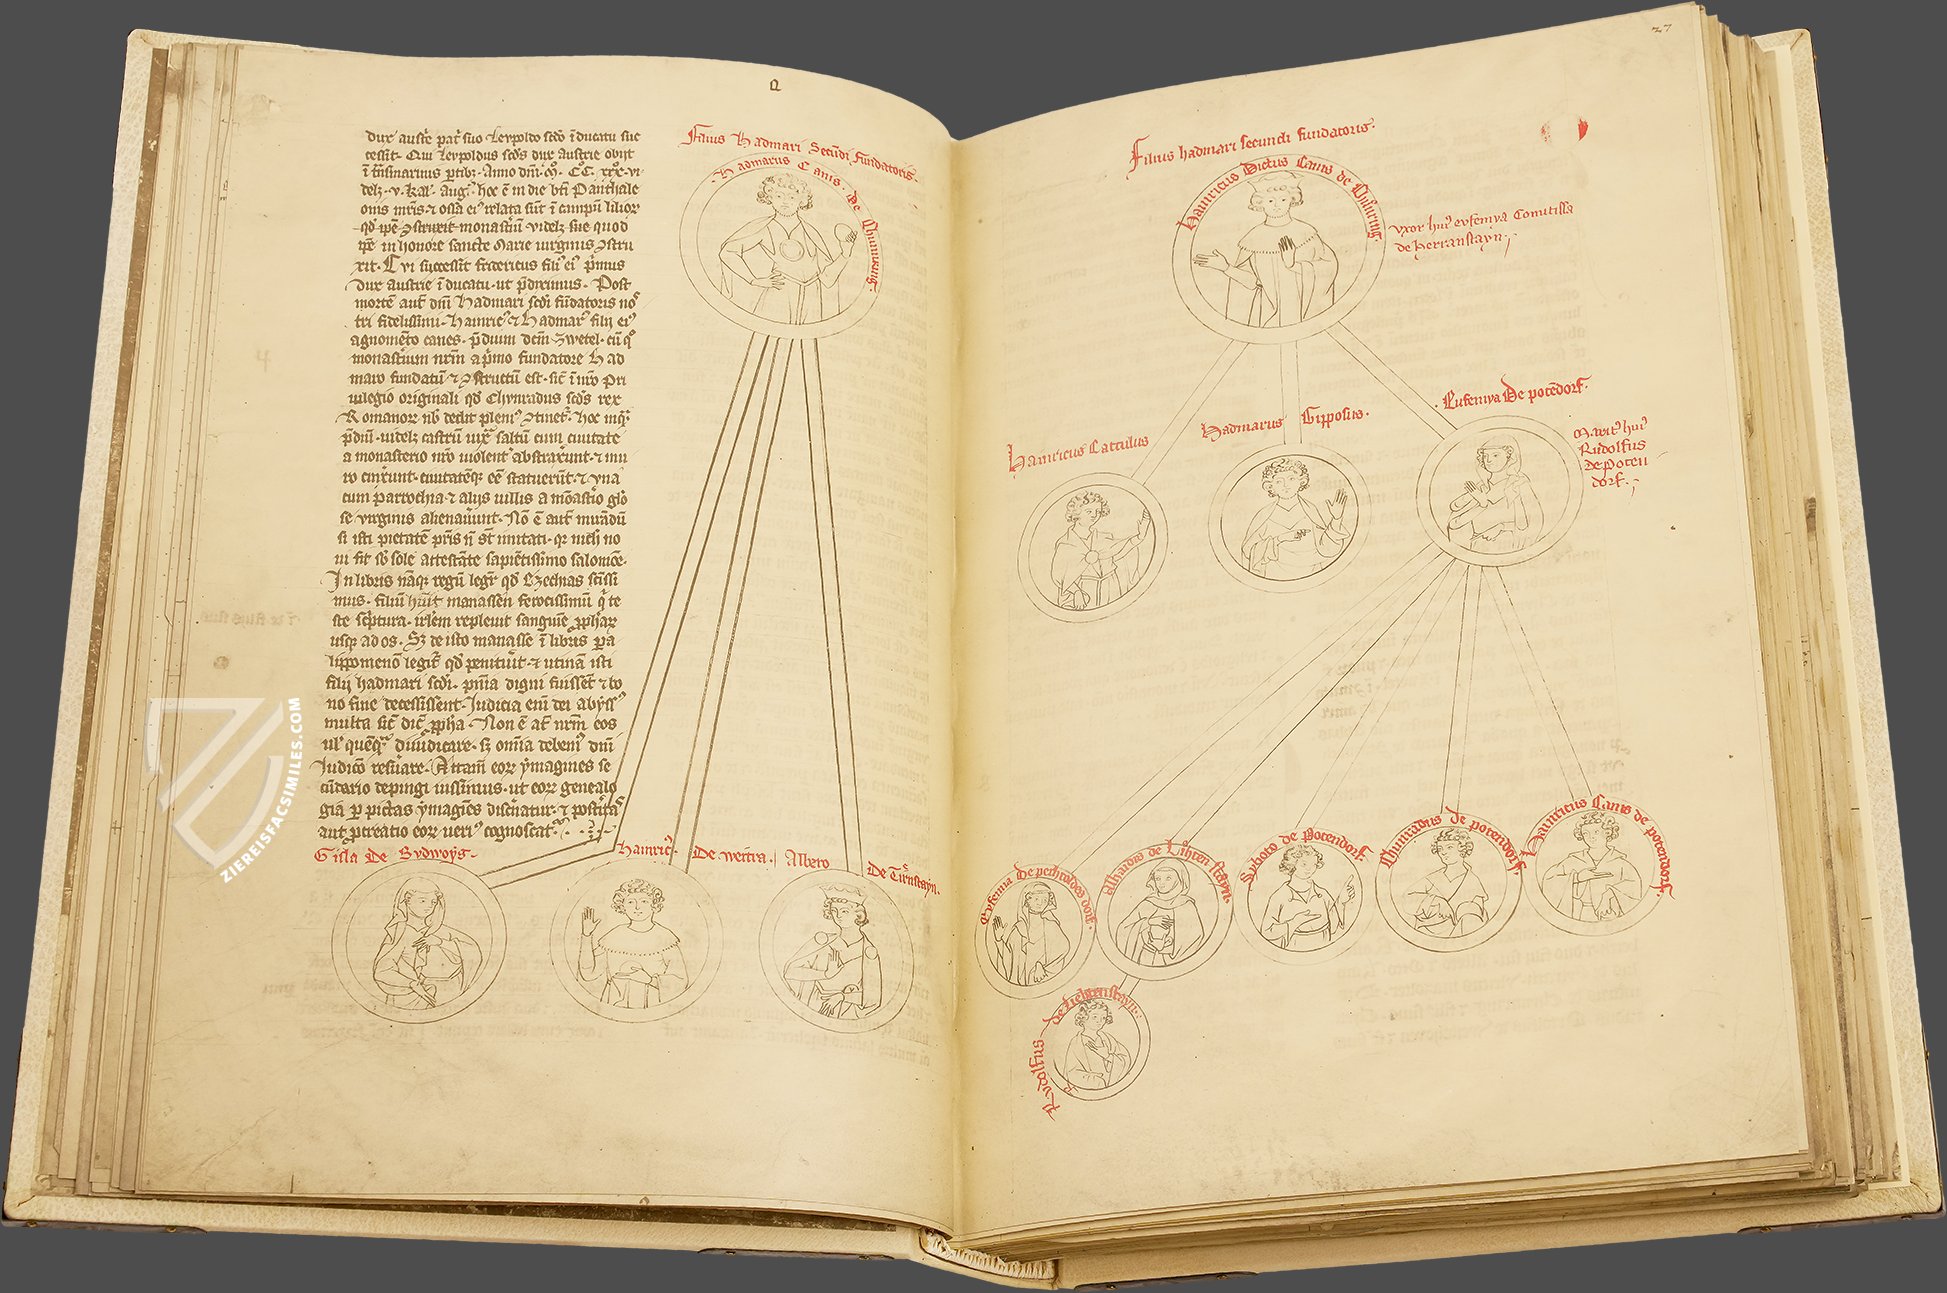 dux austrie pat suo Leypoldo scdo i ducatu suc
cessit. Qui Leypoldus scds dux austrie obijt
videlz .v. kal. Augi. hoc e in die bti Panthale
onis mris. ossa ei relata sunt i campu lilior
qd ipe construxit monastiu videlz sue quod
ipe in honore sancte Marie virginis constru
xit. Cui successit fridericus fili ei primus
dux austrie i ducatu. ut pdiximus. Post
morte aut dni Hadmari scdi fundatoris no
tri fidelissimi. Hainric et Hadmar filij ei
agnomento canes. pdium dcm Zwetel. cu
monastium nrm a primo fundatore Had
maro fundatu et constructu est. sic i nro pri
uilegio originali qd Chunradus scds rex
Romanor nb dedit pleni continet. hoc inq
pdiu. videlz castru iuxta saltu cum ciuitate
a monasterio nro violent abstraxunt. et mu
ro cinxunt. ciuitateq ee statuerut. et vna
cum parrochia. et alijs villis a monastio glo
se virginis alienauunt. No e aut miradu
si isti pietate pris n st imitati. qr nich no
ui fit sb sole attestate sapietissimo salomoe.
In libris naq regu legit qd Ezechias scissi
mus. filiu huit manassen ferocissimu q te
ste sciptura. irlem repleuit sanguie pphar
usq ad os. Sz de isto manasse i libris pa
lippomeno legit qd penituit. et utina isti
filij hadmari scdi. pnia digni fuisset et bo
no fine decessissent. Judicia eni dei abyss
multa sic dic ppha. Non e at nrm eos
ul queq diiudicare. sz omia debem dni
Judico resuare. Attam eorz ymagines se
cudario depingi iussimus. ut eorz genealo
gia per pictas ymagies discnatur. et postita
aut pcreatio eorz veri cognoscat.
Filius Hadmari Secundi Fundatoris.
Hadmarus Canis. de Chunring.
Gisla de Sydwoys.
Hainric. De wertra.
Albero De Tirnstayn.
27
Filius hadmari secundi fundatoris.
Hainricus Dictus Canis de Chunring.
vxor hui eufemya Comitissa
de herranstayn.
Hainricus Catulus
Hadmarus Gipposus.
Eufemya De potendorf.
Marit hui
Rudolfus
de Poten
dorf.
Eufemia De pechtoldesdorf.
Alhaidis de Lihtenstayn.
Syboto de Potendorf.
Chunradus de potendorf.
Hainricus Canis de potendorf.
Rudolfus de Liehtenstayn.
ZIEREISFACSIMILES.COM